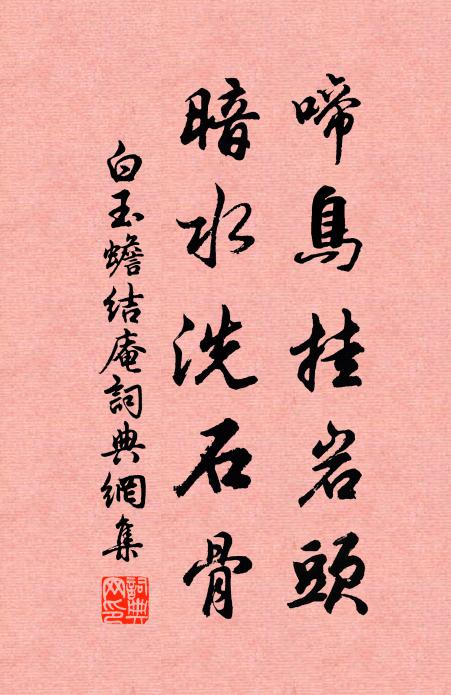 啼鳥挂岩頭
暗水洗石骨
白玉蟾結庵詞典網集
詞典
网印